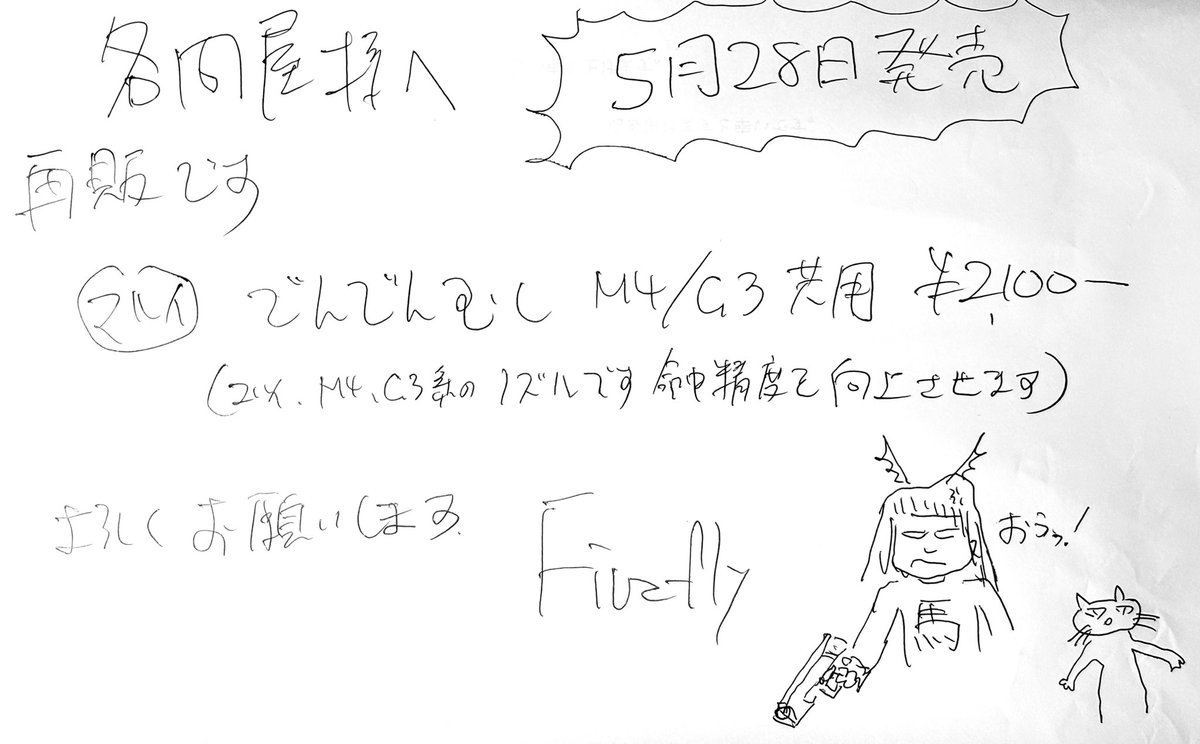 各問屋様へ
5月28日発売
再販です
マルイ でんでんむし M4/G3共用 ¥2,100ー
(マルイ、M4、G3系のノズルです 命中精度を向上させます)
よろしくお願いします。
Firefly
おうっ!
馬